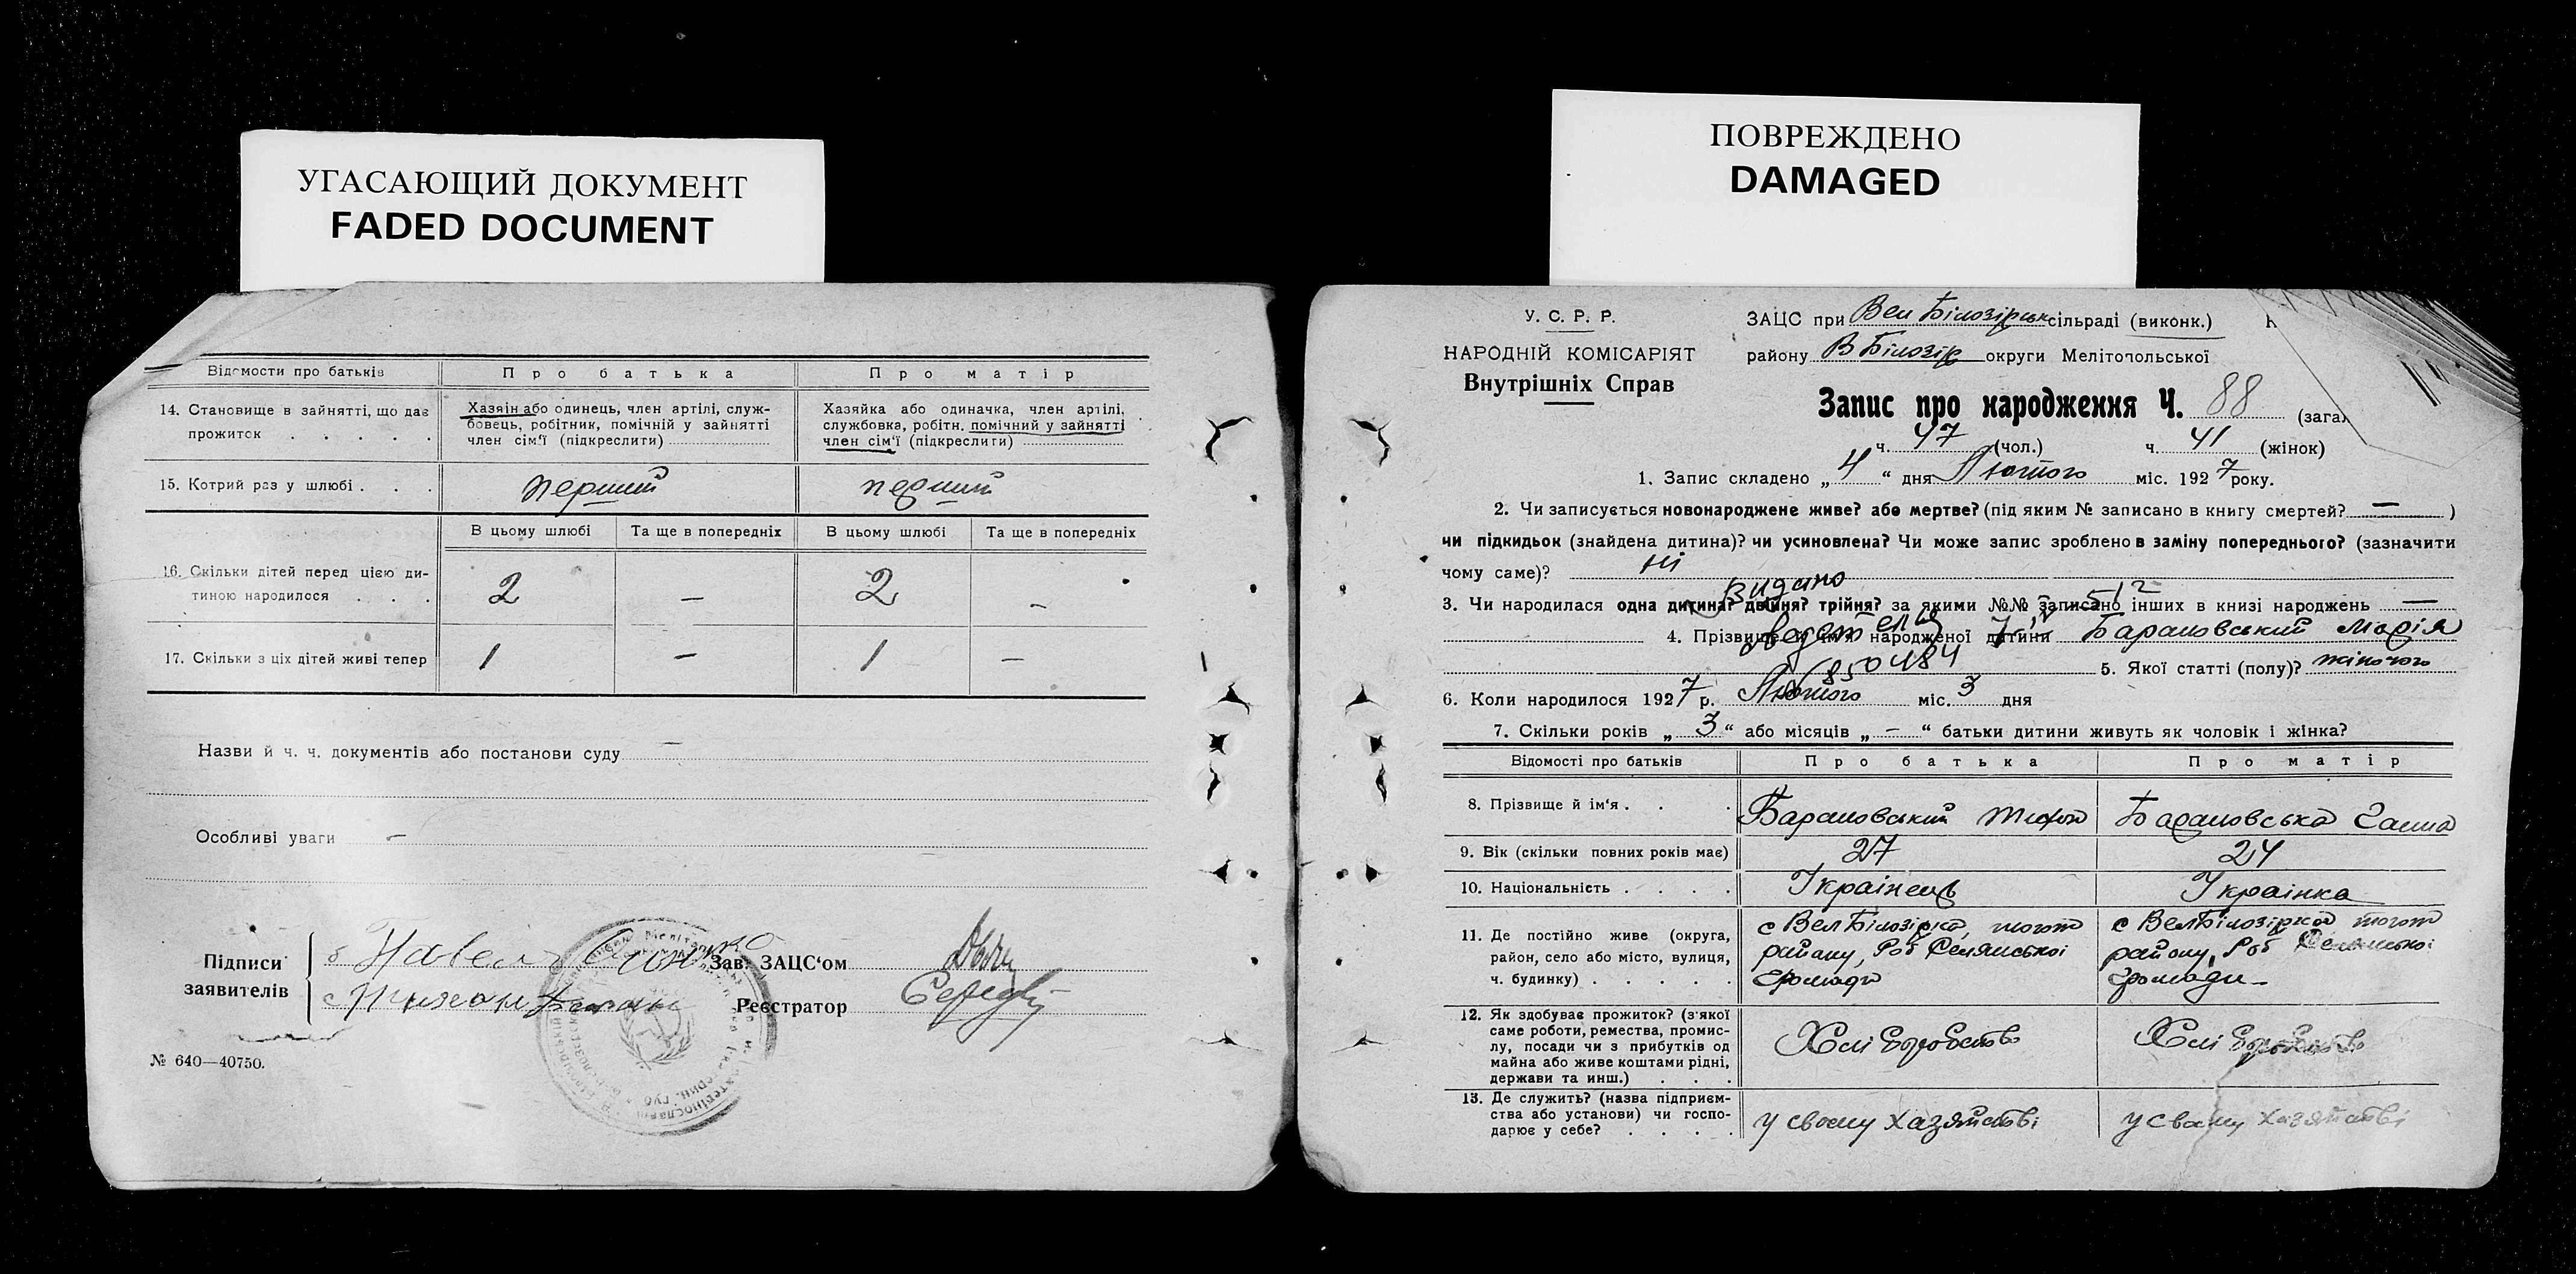 УГАСАЮЩИЙ ДОКУМЕНТ
FADED DOCUMENT
Відомости про батьків
Про батька
Про матір
14. Становище в зайнятті, що дає прожиток . . . . .
Хазяін або одинець, член артілі, служ-
бовець, робітник, помічній у зайнятті
член сім'ї (підкреслити)
Хазяйка або одиначка, член артілі,
службовка, робітн. помічний у зайнятті
член сім'ї (підкреслити)
15. Котрий раз у шлюбі . . .
перший
перший
В цьому шлюбі
Та ще в попередніх
В цьому шлюбі
Та ще в попередніх
16. Скільки дітей перед цією ди-
тиною народилося . . .
2
—
2
—
17. Скільки з ціх дітей живі тепер
1
—
1
—
Назви й ч. ч. документів або постанови суду —
Особливі уваги —
Підписи
заявителів
Зав. ЗАЦС'ом
Реєстратор
№ 640—40750.
ПОВРЕЖДЕНО
DAMAGED
У. С. Р. Р.
НАРОДНІЙ КОМІСАРІЯТ
Внутрішніх Справ
ЗАЦС при Вел Білозірськ сільраді (виконк.)
району В Білозір округи Мелітопольської
Запис про народження Ч. 88 (загал
ч. 47 (чол.) ч. 41 (жінок)
1. Запис складено „ 4 “ дня Лютого міс. 1927 року.
2. Чи записується новонароджене живе? або мертве? (під яким № записано в книгу смертей? — )
чи підкидьок (знайдена дитина)? чи усиновлена? Чи може запис зроблено в заміну попереднього? (зазначити
чому саме)? ні
Видано
512
3. Чи народилася одна дитина? двійня? трійня? за якими №№ записано інших в книзі народжень —
4. Прізвище й ім'я народженої дитини Барановський Марія
850484
5. Якої статті (полу)? жіночого
6. Коли народилося 1927 р. Лютого міс. 3 дня
7. Скільки років „ 3 “ або місяців „ — “ батьки дитини живуть як чоловік і жінка?
Відомості про батьків
Про батька
Про матір
8. Прізвище й ім'я . . .
Барановський
Барановська Ганна
9. Вік (скільки повних років має)
27
24
10. Національність . . . .
Українець
Українка
11. Де постійно живе (округа,
район, село або місто, вулиця,
ч. будинку) . . . . .
с Вел Білозірка, тогож
району, Роб Селянської
Громади
с Вел Білозірка тогож
району, Роб Селянської
Громади
12. Як здобуває прожиток? (з'якої
саме роботи, ремества, промис-
лу, посади чи з прибутків од
майна або живе коштами рідні,
держави та инш.) . . .
Хліборобство
Хліборобство
13. Де служить? (назва підприєм-
ства або установи) чи госпо-
дарює у себе? . . . .
у своєму хазяйстві
у своєму хазяйстві